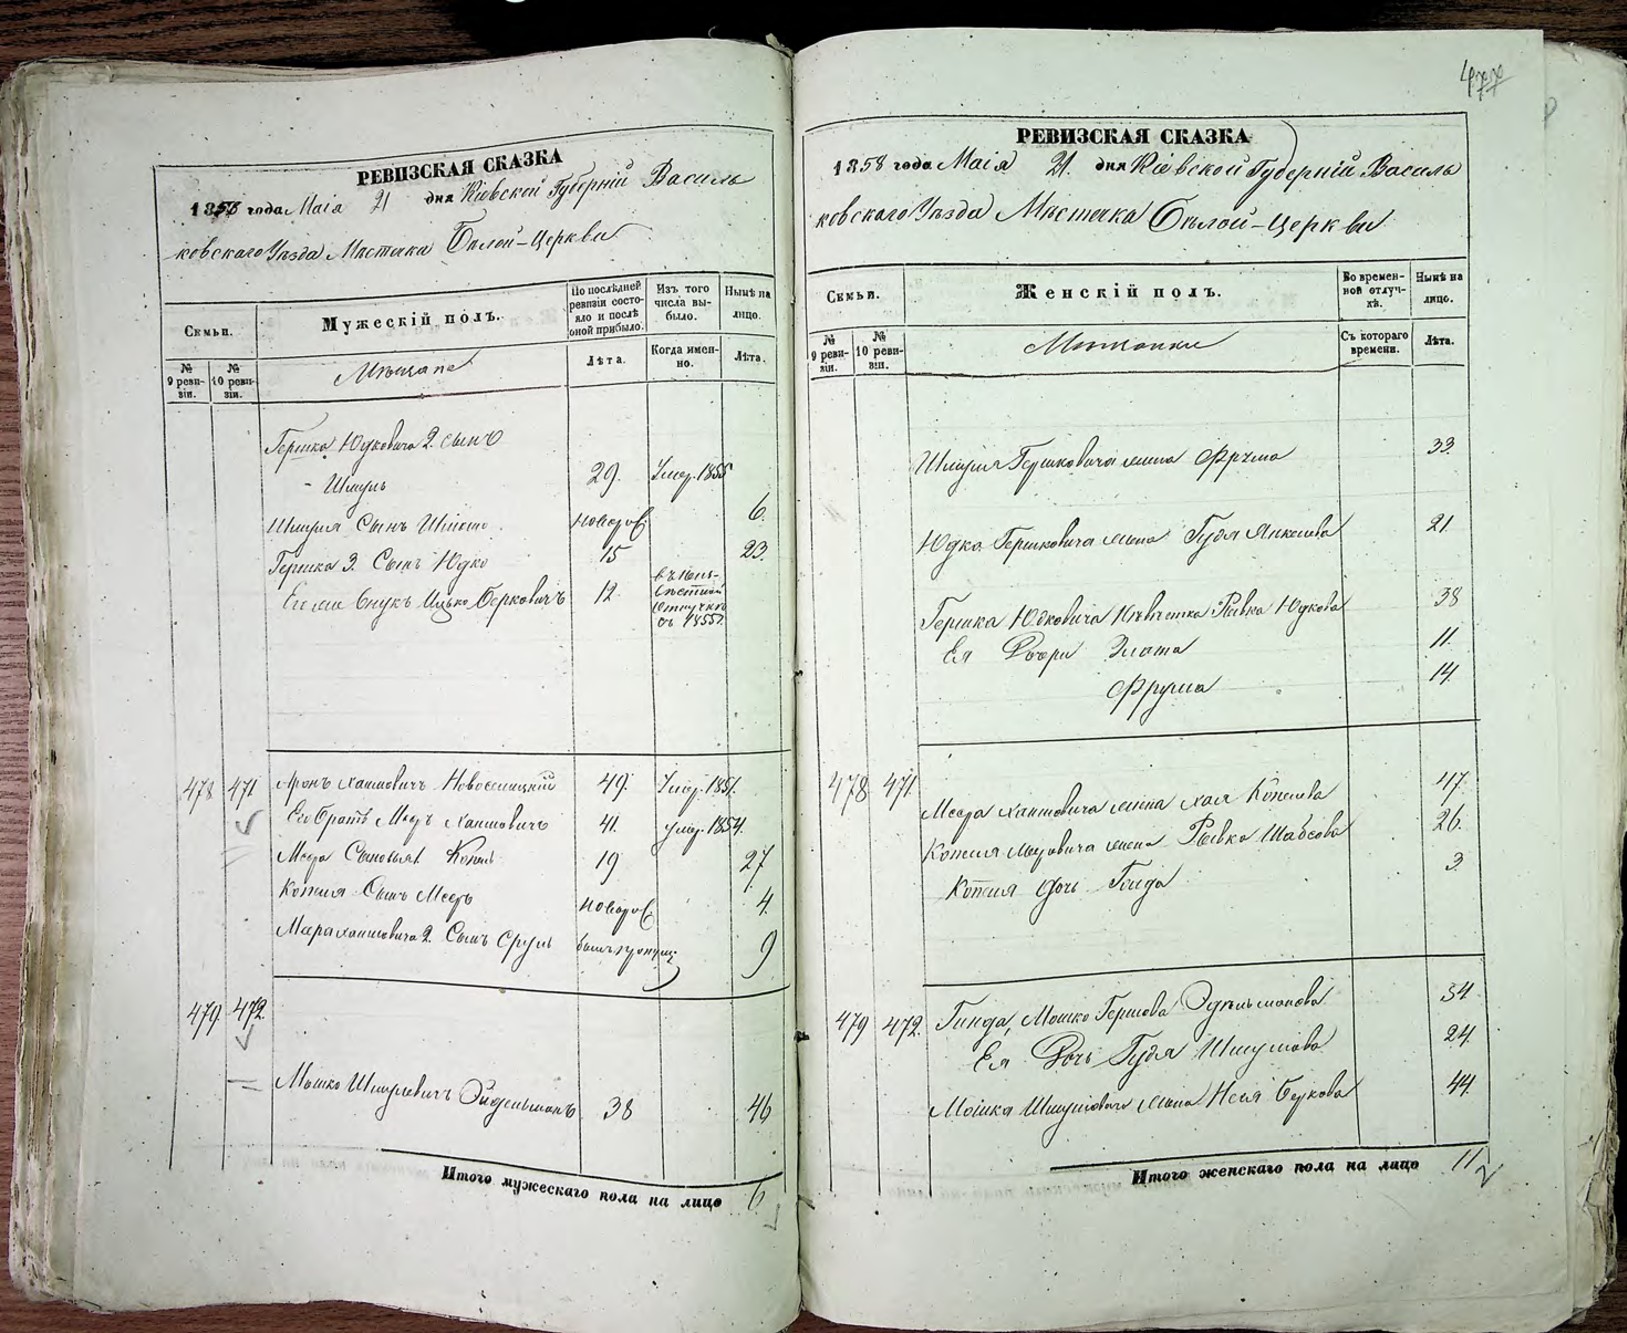 РЕВИЗСКАЯ СКАЗКА
1858 года Маія 21 дня Кіевской Губерніи Василь
ковскаго Уѣзда Мѣстечка Бѣлой-Церкви
Семьи.
Мужескій полъ.
По послѣдней ревизіи состояло и послѣ оной прибыло.
Изъ того числа выбыло.
Нынѣ на лицо.
№ 9 ревизіи.
№ 10 ревизіи.
Мѣщане
Лѣта.
Когда именно.
Лѣта.
Гершка Юдковича 2. сынъ
- Шмуль 29. Умер. 1855
Шмуля Сынъ новорож. 6.
Гершка 3. Сынъ Юдко 15 23.
Его же Внукъ Ицько Берковичъ 12 въ
отлучкѣ
съ 1855
478 471 Аронъ Хаимовичъ 49. Умер. 1851.
Его Братъ Меэръ Хаимовичъ 41. умер. 1854.
Меэра Сыновья 1. 19 27
Сынъ Меэръ новорож. 4.
Меэра Хаимовича 2. Сынъ Сруль былъ пропущ. 9
479 472.
Мошко Шмулевичъ Эйдельманъ 38 46
Итого мужескаго пола на лицо 6
477
РЕВИЗСКАЯ СКАЗКА
1858 года Маія 21. дня Кіевской Губерніи Василь
ковскаго Уѣзда Мѣстечка Бѣлой-Церкви
Семьи.
Женскій полъ.
Во временной отлучкѣ.
Нынѣ на лицо.
№ 9 ревизіи.
№ 10 ревизіи.
Мѣщанки
Съ котораго времени.
Лѣта.
Шмуля Гершковича жена Фрума 33.
Юдка Гершковича жена Гудя Янкелева 21
Гершка Юдковича Невѣстка Ривка Юдкова 38
Ея Дочери Злота 11.
Фрума 14.
478 471 Меэра Хаимовича жена Хая 47.
Меэровича жена Ривка Шабсова 26.
Дочь 3.
479 472. Гинда, Мошко Гершова Эдельманова 34
Ея Дочь Гудя Шмулева 24.
Мошка Шмулевича жена Неся Беркова 44.
Итого женскаго пола на лицо 11